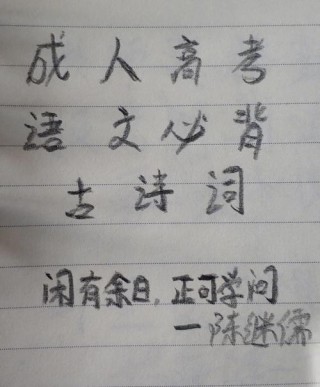 成人高考
语文必背
古诗词
闲有余日,正可学问
—陈继儒